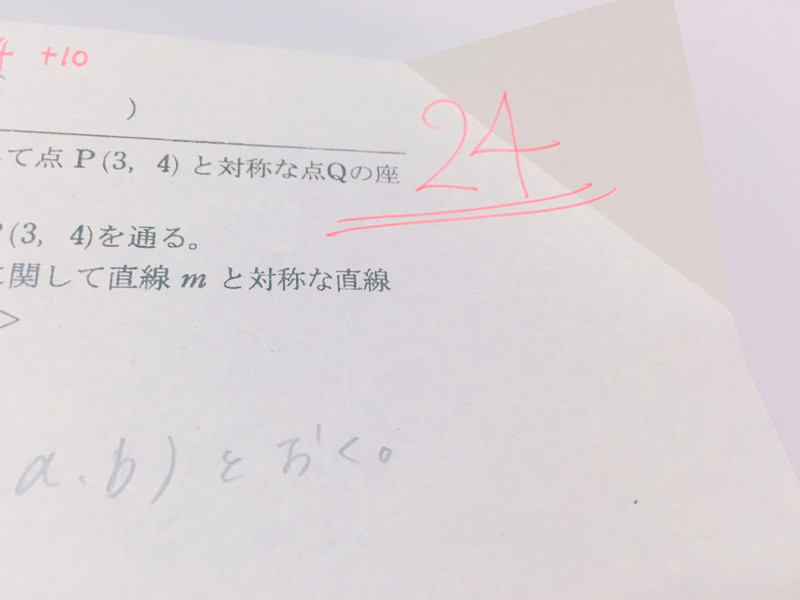 4 +10
)
24
て点 P (3, 4) と対称な点Qの座
P(3, 4)を通る。
に関して直線 m と対称な直線
>
a.b)とおく。